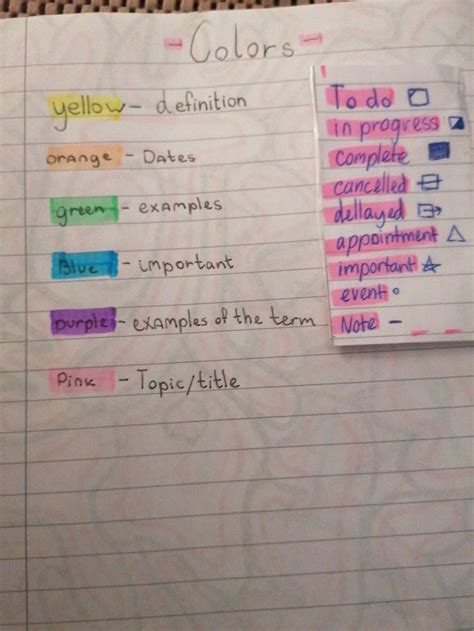 - Colors -
yellow - definition
orange - Dates
green - examples
Blue - important
purple - examples of the term
Pink - Topic/title
To do
in progress
complete
cancelled
dellayed
appointment
important
event
Note -